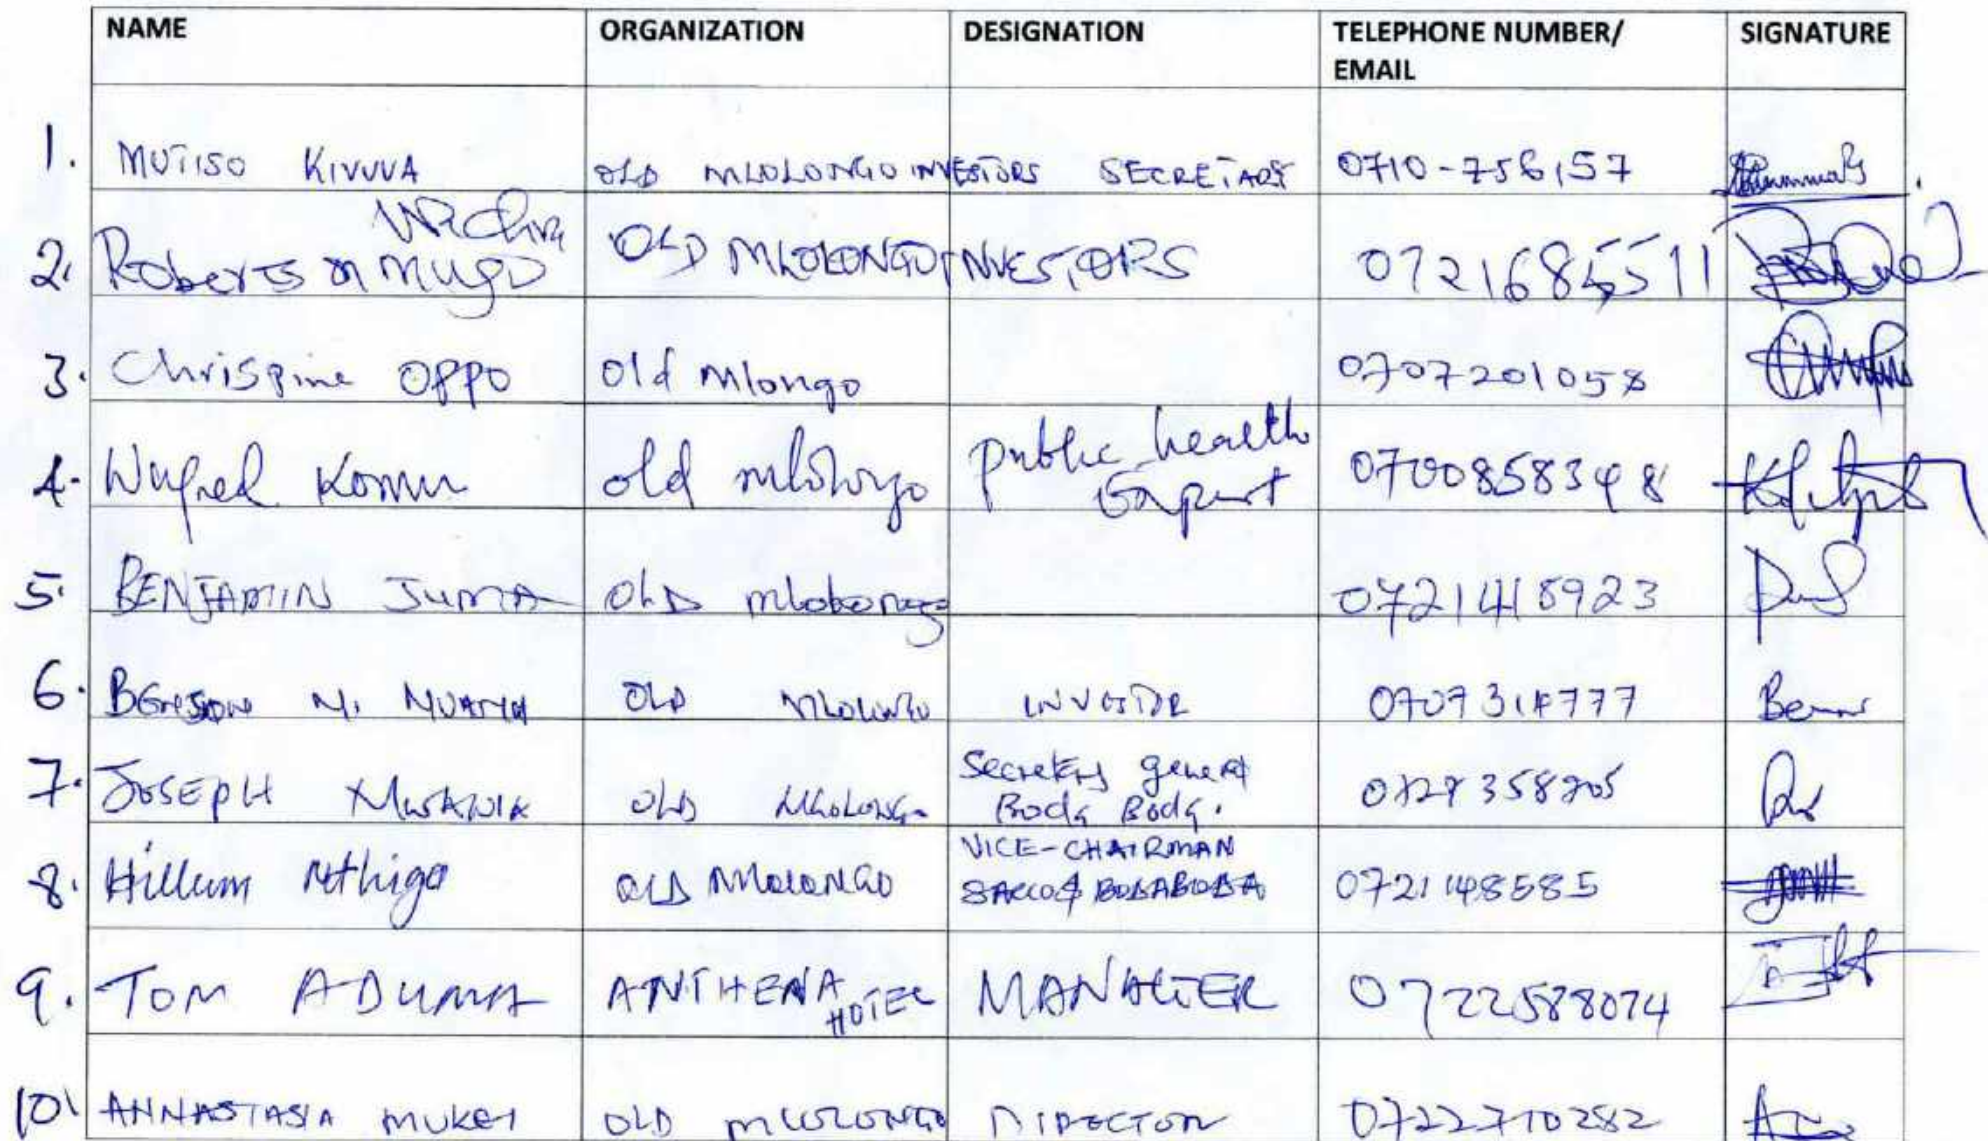 NAME ORGANIZATION DESIGNATION TELEPHONE NUMBER/ SIGNATURE
EMAIL
1. MUTISO KIVUVA OLD MLOLONGO INVESTORS SECRETARY 0710-756,157
2. Roberts M Mugo OLD MLOLONGO INVESTORS 0721685511
3. Chrispine OPPO Old Mlongo 0707201058
4. Komu old mlolongo public health
Expert
5. BENJAMIN JUMA OLD mlolongo 0721418923
6. M. OLD MLOLONGO INVESTOR 0707314777
7. JOSEPH OLD MLOLONGO Secretary general
Boda Boda.
8. Hillum Nthiga OLD MLOLONGO VICE-CHAIRMAN
BODABODA 0721148585
9. TOM ADUMA ANTHENA HOTEL MANAGER 0722588074
10 ANNASTASIA MUKEI OLD MLOLONGO DIRECTOR 0722710282